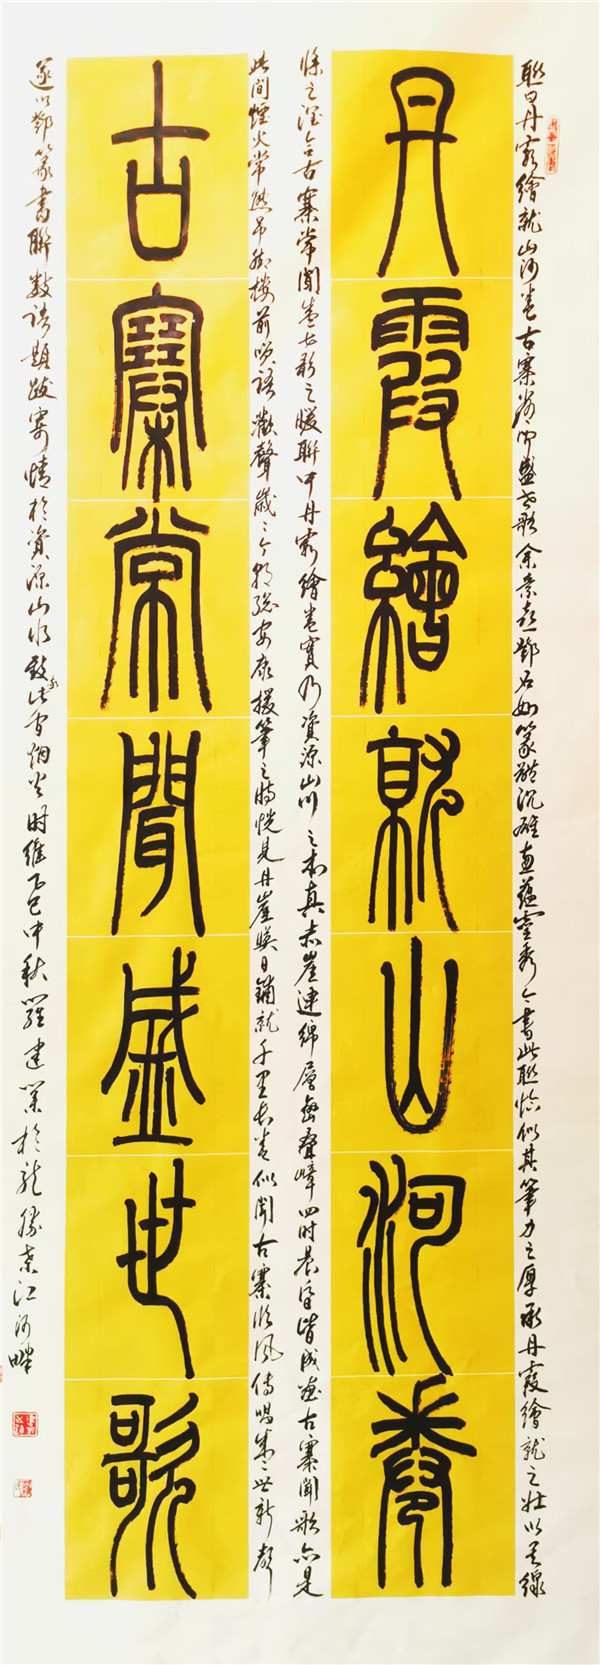 聯曰丹霞繪就山河卷古寨常聞盛世歌余素喜鄧石如篆體沉雄蘊靈秀今書此聯恰似其筆力之厚承丹霞繪就之壯以其線
丹霞繪就山河卷
條之潤合古寨常聞盛之暖聯中丹霞繪卷實乃資源山川之本真赤崖連綿層巒疊嶂四時晨昏皆成畫古寨聞歌亦是
此間煙火常態吊腳樓前笑語歡聲歲歲今朝總安康援筆之時恍見丹崖映日鋪就千里長卷似聞古寨臨風傳唱盛世新聲
古寨常聞盛世歌
遂以鄧篆書聯數語題跋寄情於資源山水致此方烟火時維乙巳中秋羅建業於龍勝桑江河畔